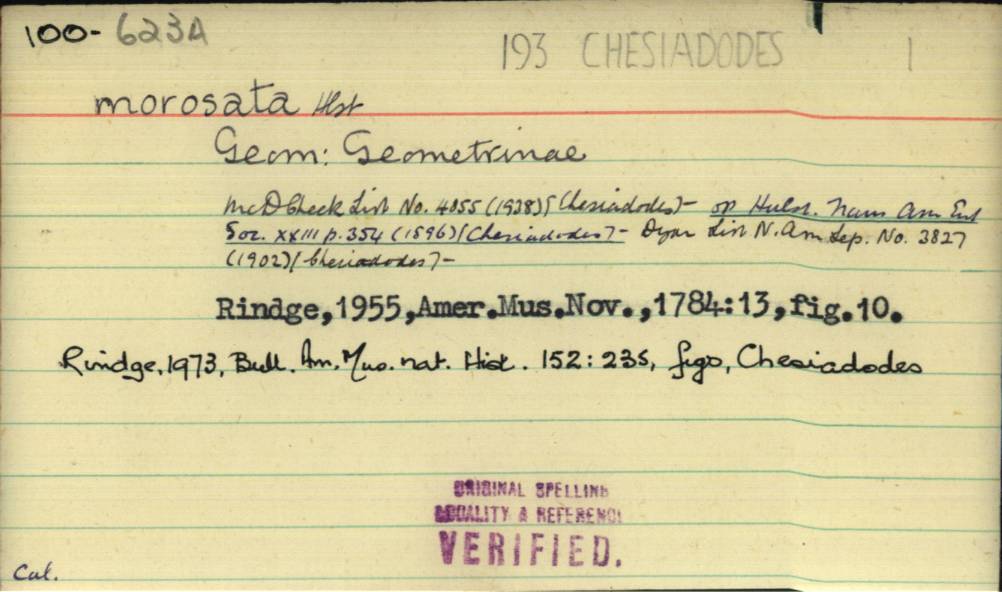 100- 623A
193 CHESIADODES 1
morosata Hlst
Geom: Geometrinae
McD Check List No. 4055 (1938) [Chesiadodes] - op Hulst. Trans Am Ent
Soc. XXIII p. 354 (1896) [Chesiadodes] - Dyar List N. Am Lep. No. 3827
(1902) [Chesiadodes] -
Rindge,1955,Amer.Mus.Nov.,1784:13,fig.10.
Rindge, 1973, Bull. Am. Mus. nat. Hist. 152: 235, figs, Chesiadodes
ORIGINAL SPELLING
LOCALITY & REFERENCE
VERIFIED.
Cal.